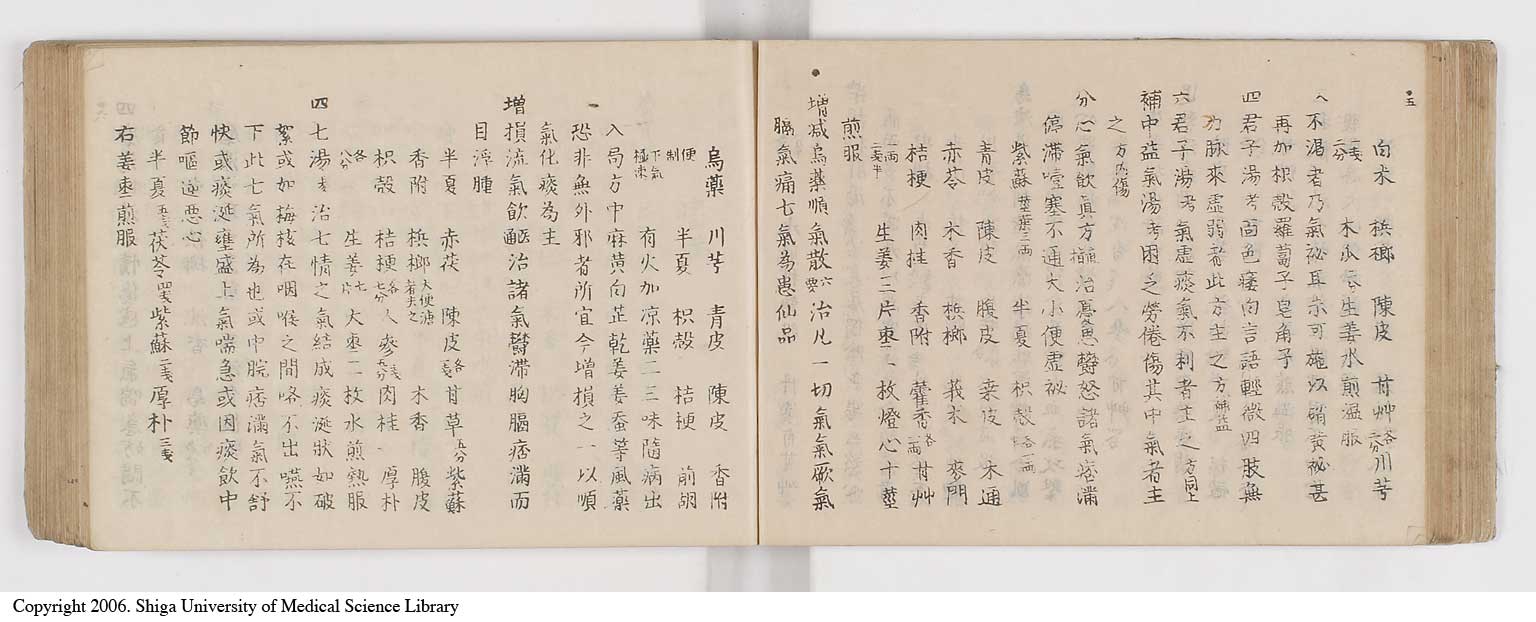 白木 檳榔 陳皮 甘艸各二分 川芎
一戔二分 木瓜 生姜水煎温服
不渴者乃氣秘耳亦可施以 秘甚
再加枳殻羅蔔子皂角子
四君子湯 面色痿白言語輕微四肢無
力脉來虚弱者此方主之方 益
六君子湯 氣虚痰氣不利者主之方同上
補中益氣湯 困乏勞倦傷其中氣者主
之方内傷
分心氣飲真方 治憂 欝怒諸氣痞滿
停滯噎塞不通大小便虚秘
紫蘇莖葉三両 半夏 枳殻各一両
青皮 陳皮 腹皮 桒皮 木通
赤苓 木香 檳榔 莪朮 麥門
桔梗 肉桂 香附 藿香各一両 甘艸
一両二戔半 生姜三片棗二枚燈心十莖
煎服
増减烏藥順氣散 治凡一切氣氣厥氣
膈氣痛七氣為患仙品
烏藥 川芎 青皮 陳皮 香附
便制 半夏 枳殻 桔梗 前胡
下氣極速 有火加凉藥二三味隨病出
入局方中麻黄白芷乾姜姜蚕等風藥
恐非無外邪者所宜今増損之一以順
氣化痰為主
増損流氣飲 治諸氣欝滯胸膈痞滿而
目浮腫
半夏 赤茯 陳皮各一戔 甘草五分 紫蘇
香附 檳榔大便溏者去之 木香 腹皮
枳殻 桔梗各七分 人參 肉桂 厚朴
各八分 生姜七片 大棗二枚水煎熱服
四七湯 治七情之氣結成痰涎狀如破
絮或如梅核在咽喉之間咯不出嚥不
下此七氣所為也或中脘痞滿氣不舒
快或痰涎壅盛上氣喘急或因痰飲中
節嘔逆惡心
半夏五戔 茯苓四戔 紫蘇二戔 厚朴三戔
右姜棗煎服
Copyright 2006. Shiga University of Medical Science Library